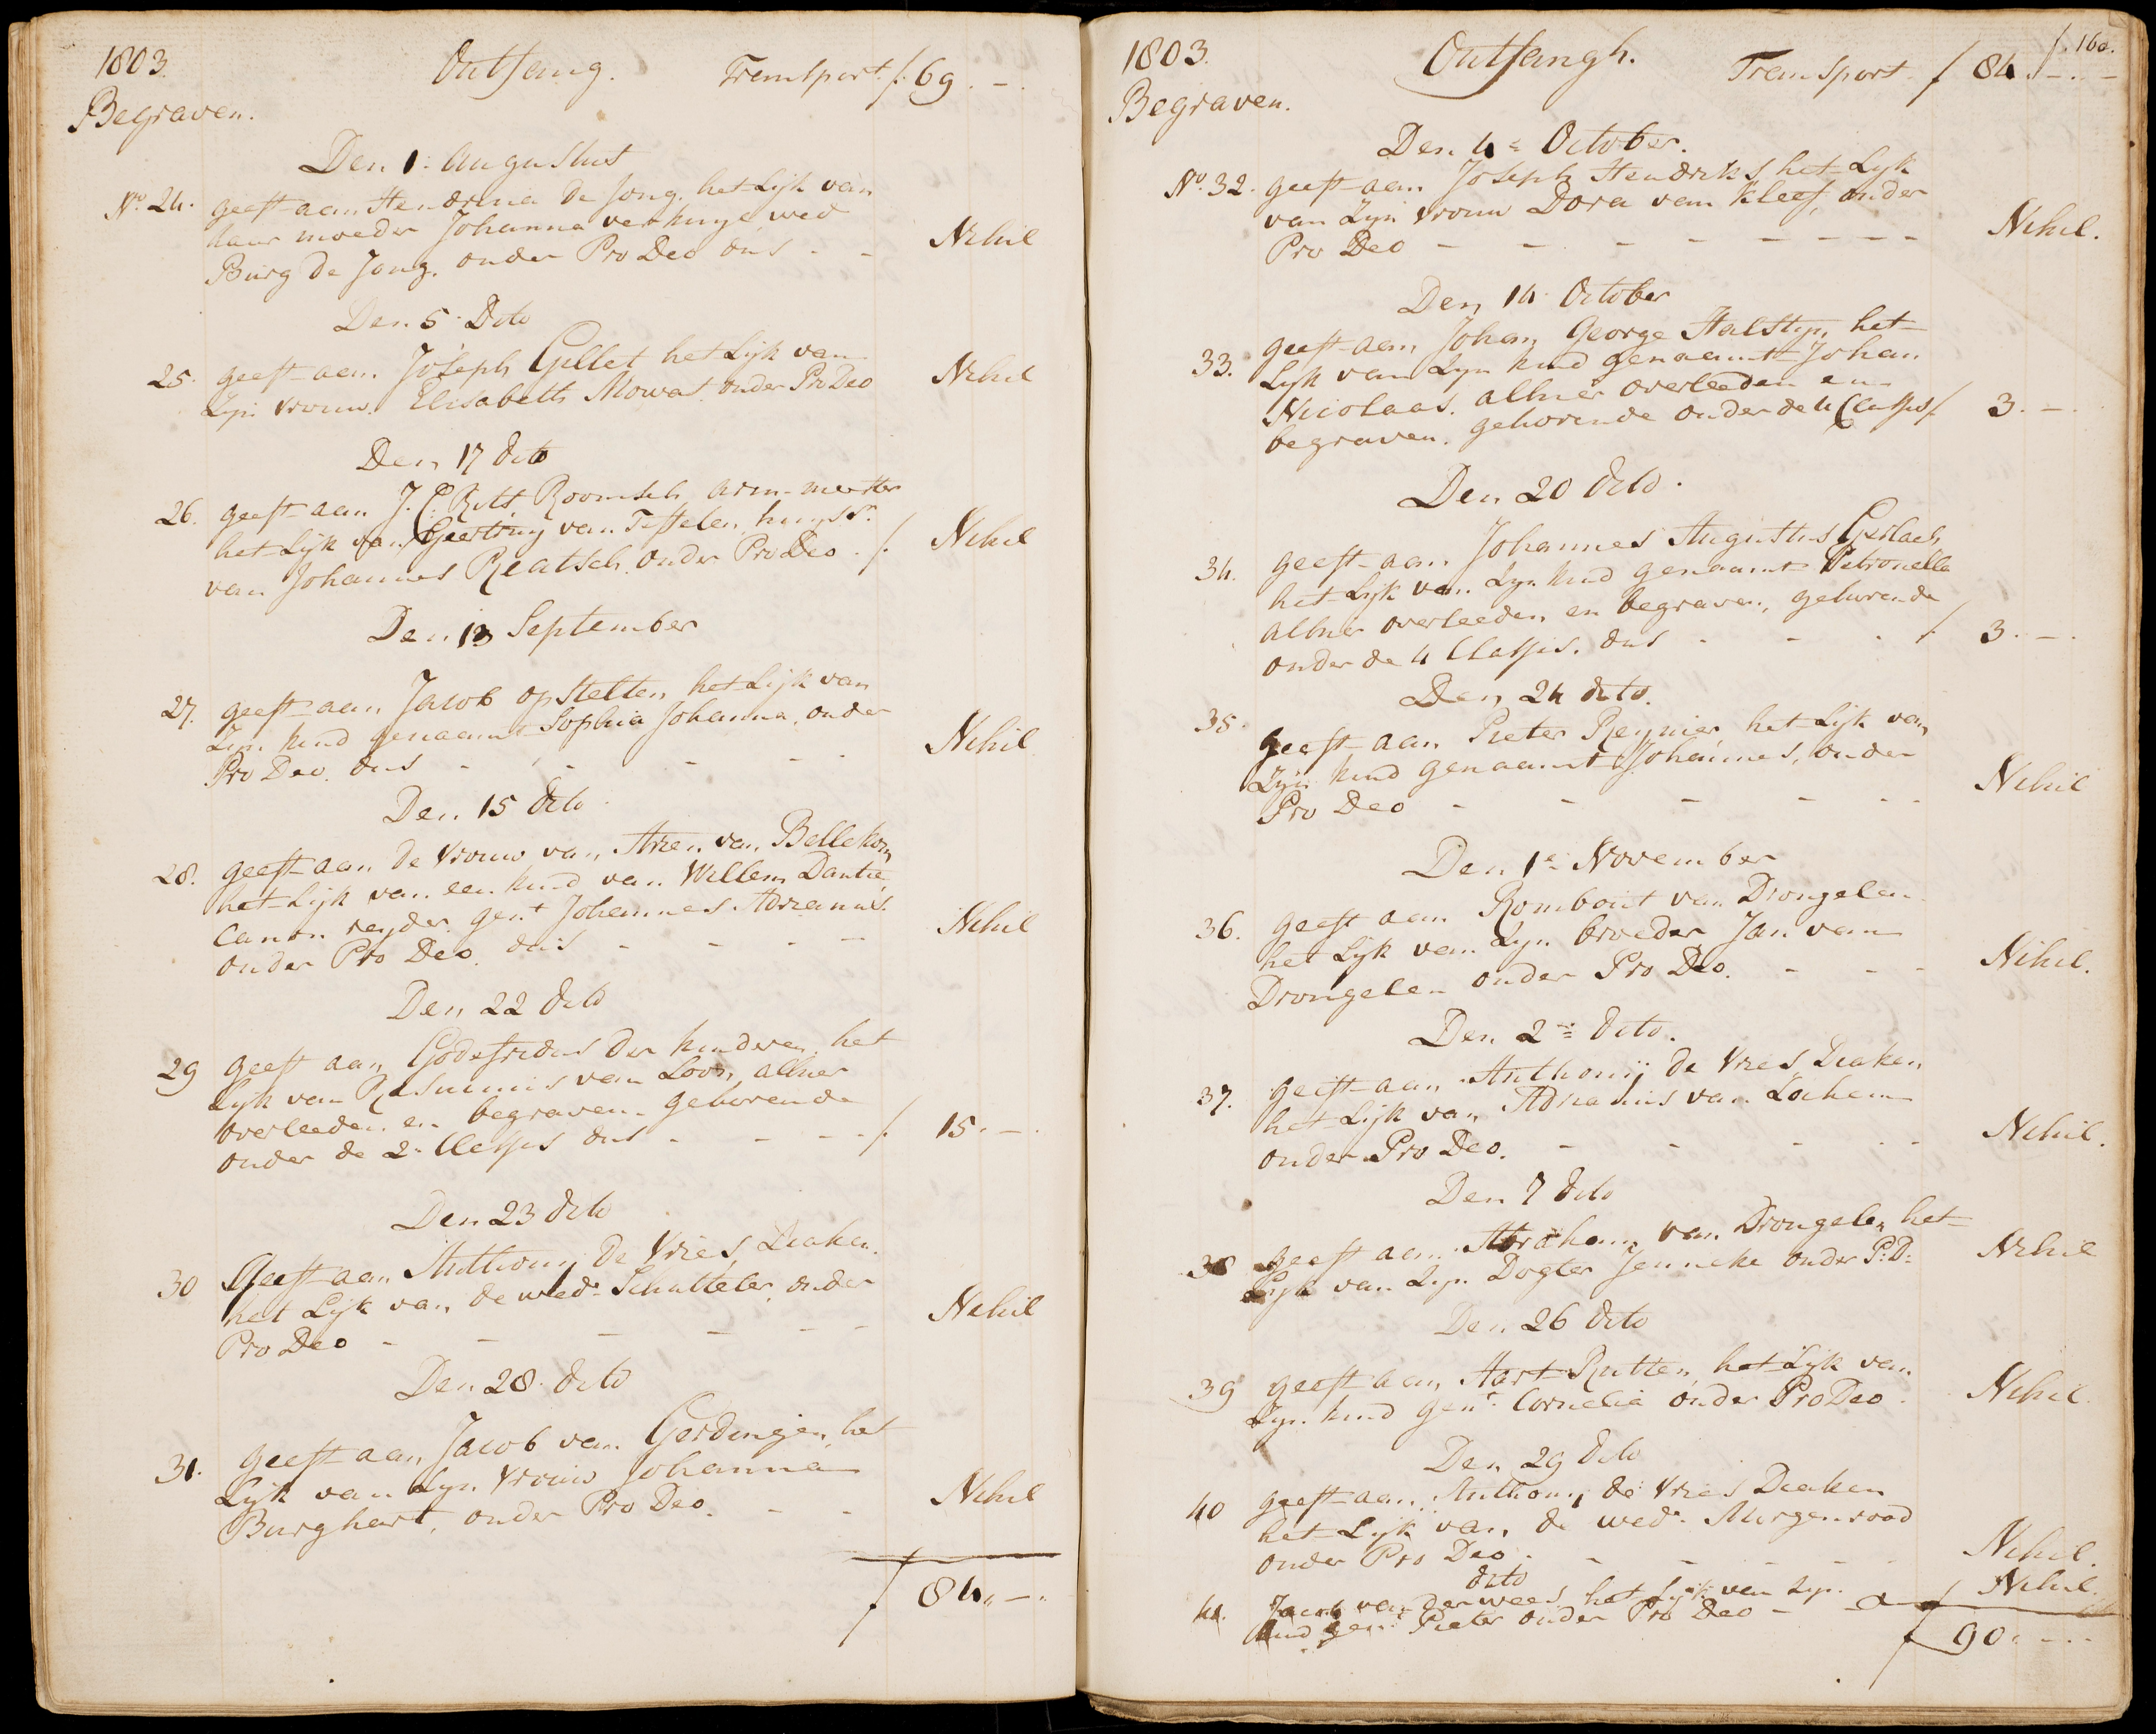 1803. Ontfang. Transport. f. 69. -.
Begraven.
Den 1. Augustus
No. 24. geeft aan Hendrina de Jong, het Lijk van
haar moeder Johanna verhuyse, wed
Burg de Jong. onder Pro Deo dus - - Nihil
Den 5. Dito
25. geeft aan Joseph Gillet het Lijk van
Zijn vrouw. Elisabeth Mowat. onder Pro Deo Nihil
Den 17 dito
26. geeft aan J. C. Ritt, Roomsch arm-meester
het Lijk van Geertruy van Teffelen, huysvr.
van Johannes Reatsch. onder Pro Deo. f. Nihil
Den 13 September
27. geeft aan Jacob opstelten, het Lijk van
Zijn kind genaamt Sophia Johanna, onder
Pro Deo. dus - - - - - Nihil
Den 15 dito.
28. geeft aan de vrouw van Arien van Bellekom
het Lijk van een kind van Willem Dantie,
Canon reyder. gent. Johannes Adrianus.
onder Pro Deo. dus - - - - Nihil
Den 22 dito
29 geeft aan Godefridus der kinderen het
Lijk van Rasminis van Loon, alhier
overleeden en begraven gehorende
onder de 2e Classis dus - - - - f. 15. -.
Den 23 dito
30 Geeft aan Anthony de Vries, Diaken.
het Lijk van de wede. Schutteler, onder
Pro Deo - - - - - - Nihil
Den 28. dito
31. geeft aan Jacob van Gordingen, het
Lijk van Zijn vrouw Johanna
Burghart, onder Pro Deo. - - Nihil
f 84,, -.
f. 160.
1803. Ontfangh. Transport. f 84. -. -
Begraven.
Den 4e October.
No. 32. geeft aan Joseph Hendriks, het Lijk
van Zijn vrouw Dora van Kleef, onder
Pro Deo - - - - - - - - Nihil.
Den 14 October
33. geeft aan Johan George Halstyn, het
Lijk van Zyn kind genaamt Johan
Nicolaas. alhier overleeden en
begraven. gehorende onder de 4 Classis f 3. -.
Den 20 dito.
34. geeft aan Johannes Augustus Gerlach
het Lijk van Zyn kind genaamt Petronella
alhier overleeden, en begraven, gehorende
onder de 4 Classis. dus - - - f 3. -.
Den 24 dito.
35. geeft aan Pieter Reynier het Lijk van
Zijn kind genaamt Johannes, onder
Pro Deo - - - - - - Nihil
Den 1e November
36. geeft aan Rombout van Drongelen
het Lijk van Zyn broeder Jan van
Drongelen onder Pro Deo. - - - Nihil.
Den 2e dito.
37. geeft aan Anthonij de Vries, Diaken
het Lijk van Adrianus van Lochem
onder Pro Deo. - - - - - Nihil.
Den 7 dito
38 geeft aan Abraham van Drongelen het
Lijk van Zyn Dogter Jenneke onder P: D: Nihil
Den 26 dito
39 geeft aan Aart Rutten, het Lijk van
Zyn kind gent. Cornelia onder Pro Deo. Nihil.
Den 29 dito
40 geeft aan Anthony de Vries Diaken
het Lijk van de wede. Morgenrood
onder Pro Deo. - - - - - Nihil.
dito
41. Jacob van der wees het Lijk van Zyn
kind gent. Pieter onder Pro Deo - - Nihil.
f 90. - -